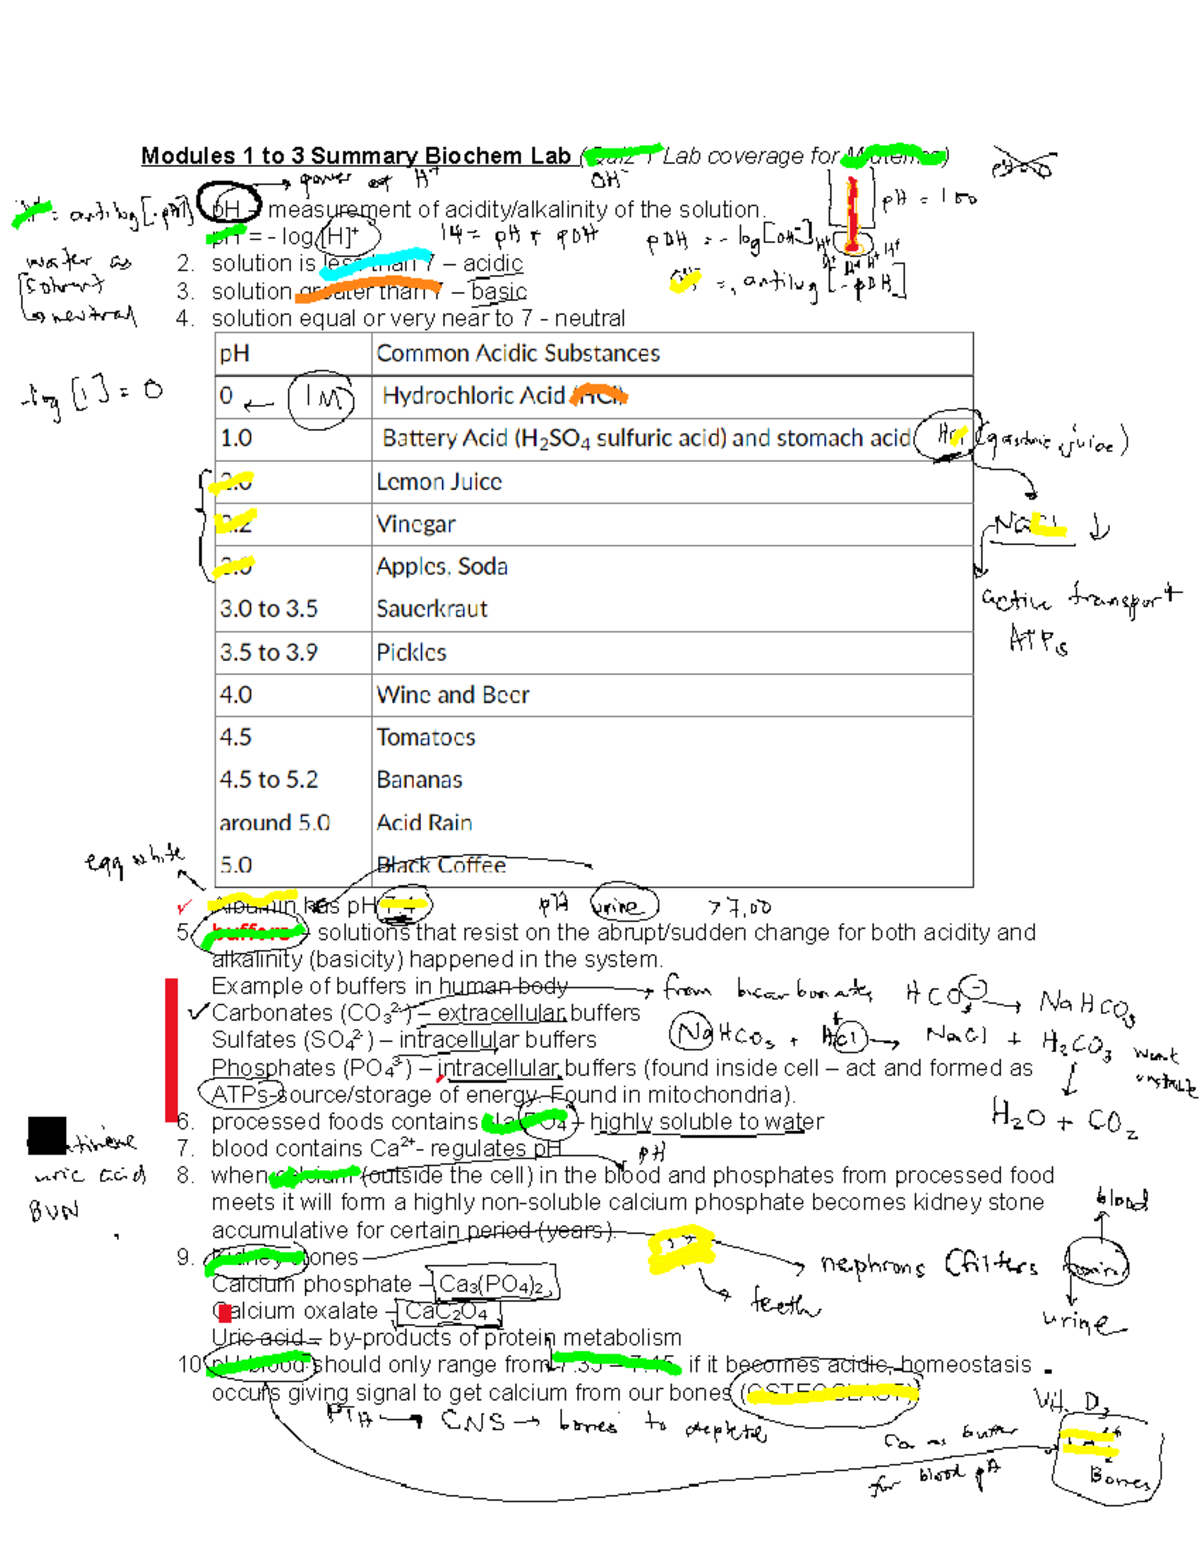 Modules 1 to 3 Summary Biochem Lab (Quiz 1 Lab coverage for Midterms)
power of H⁺
OH⁻
= antilog[-pH]
pH - measurement of acidity/alkalinity of the solution.
pH = 100
pH = - log [H]⁺
14 = pH + pOH
pOH = - log[OH⁻]
H⁺ H⁺
water as
solvent
neutral
2. solution is less than 7 – acidic
= antilog[-pOH]
3. solution greater than 7 – basic
4. solution equal or very near to 7 - neutral
pH Common Acidic Substances
-log [1] = 0
0 1M Hydrochloric Acid (HCl)
1.0 Battery Acid (H₂SO₄ sulfuric acid) and stomach acid HCl (gastric juice)
Lemon Juice
2.2 Vinegar
NaCl ↓
Apples, Soda
active transport
ATPs
3.0 to 3.5 Sauerkraut
3.5 to 3.9 Pickles
4.0 Wine and Beer
4.5 Tomatoes
4.5 to 5.2 Bananas
around 5.0 Acid Rain
5.0 Black Coffee
egg white
Albumin has pH 7.4
pH urine >7.00
5. buffers - solutions that resist on the abrupt/sudden change for both acidity and
alkalinity (basicity) happened in the system.
Example of buffers in human body
from bicarbonate HCO₃⁻ → NaHCO₃
Carbonates (CO₃²⁻) – extracellular buffers
NaHCO₃ + HCl → NaCl + H₂CO₃ weak
unstable
Sulfates (SO₄²⁻) – intracellular buffers
Phosphates (PO₄³⁻) – intracellular buffers (found inside cell – act and formed as
ATPs-source/storage of energy. Found in mitochondria).
H₂O + CO₂
6. processed foods contains – highly soluble to water
7. blood contains Ca²⁺- regulates pH
pH
uric acid
BUN
8. when calcium (outside the cell) in the blood and phosphates from processed food
meets it will form a highly non-soluble calcium phosphate becomes kidney stone
accumulative for certain period (years).
blood
9. Kidney stones
nephrons (filters
urine
teeth
Calcium phosphate – Ca₃(PO4)₂
Calcium oxalate – CaC₂O₄
Uric acid – by-products of protein metabolism
10. pH blood should only range from 7.35 – 7.45, if it becomes acidic, homeostasis
occurs giving signal to get calcium from our bones (OSTEOCLAST)
PTH → CNS → bones to deplete
Vit. D₃
Ca as buffer
for blood pH
Bones